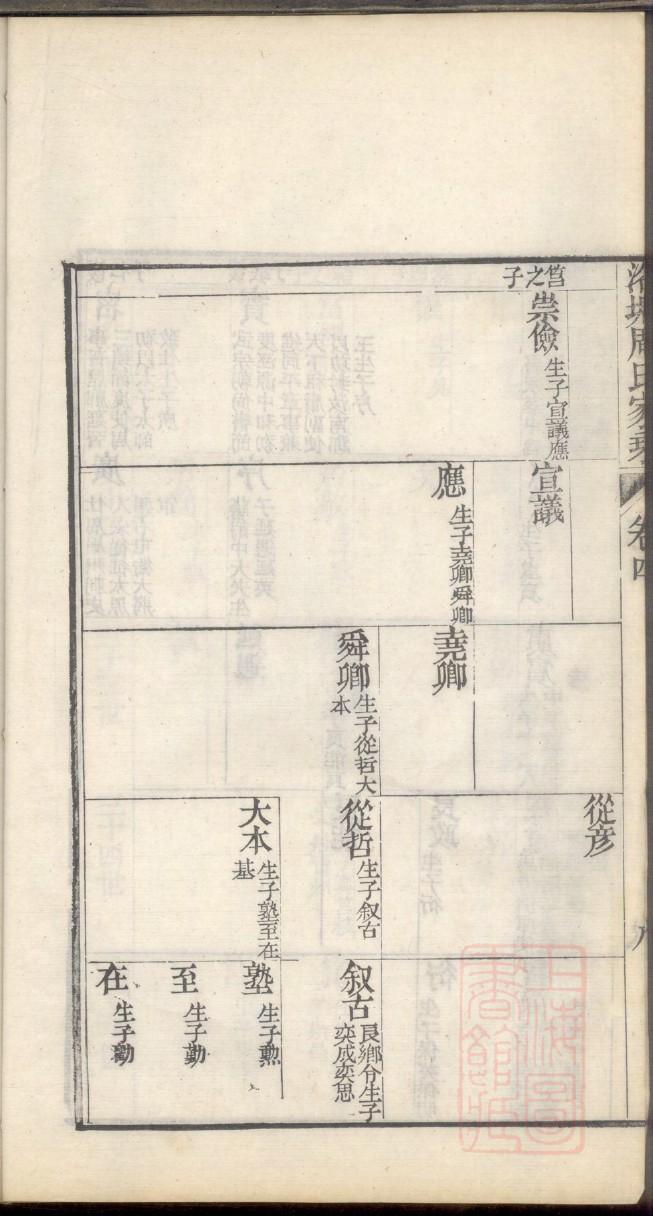 周氏家乘
卷四
筥之子
崇儉 生子宣議應
宣議
應 生子堯卿舜卿
堯卿
舜卿 生子從哲大
本
從彥
從哲 生子叙古
大本 生子塾至在
基
叙古 良鄉令生子
奕成奕思
塾 生子勲
至 生子勤
在 生子勷
上海圖書館藏